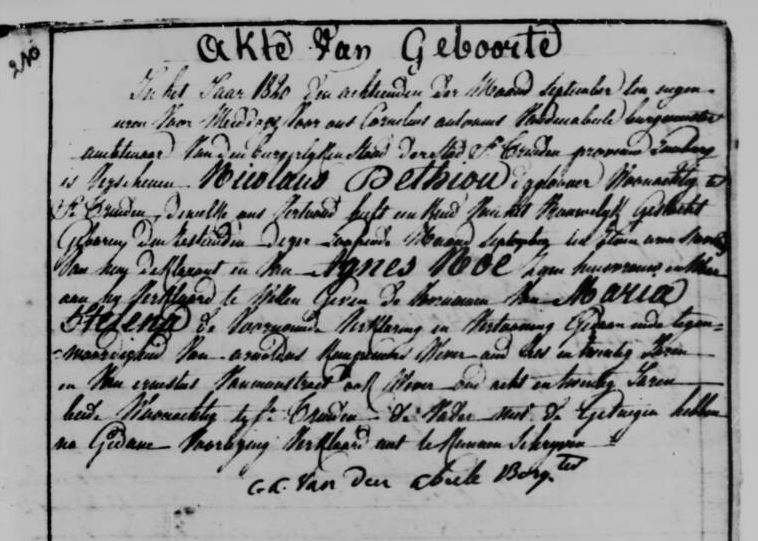 210
Akte Van Geboorte
In het Jaar 1820 den achtienden der Maand September ten negen
uren Voor Middag Voor ons Cornelius antonius Vandenabeele burgemeester
amebtenaar Van den burgelyken Stand der Stad St Truyden provincie Limburg
is Verschenen Nicolaus Pethiou daglooner Woonachtig te
St Truyden, denwelke ons Vertoond heeft een Kind Van het Vrouwelyk Geslacht
Geboren den sestienden dezer Loopende Maand September ten
Van hem deklarant en Van Agnes Noe zyne huisvrouwe en Welk
aan hy Verklaard te Willen Geven de Vornamen Van Maria
Helena de Voornoemde Verklaring en Vertooning Gedaan inde tegen-
-waardigheid Van arnoldus Wever oud dres en twintig Jaren
en Van ernestus Vanmunstraet ook Wever oud acht en twintig Jaren
beide Woonachtig te St Truyden de Vader met de Getuigen hebben
na Gedane Voorlezing Verklaard niet te Kunnen Schryven
C.A. Van den abeele Borg.ter